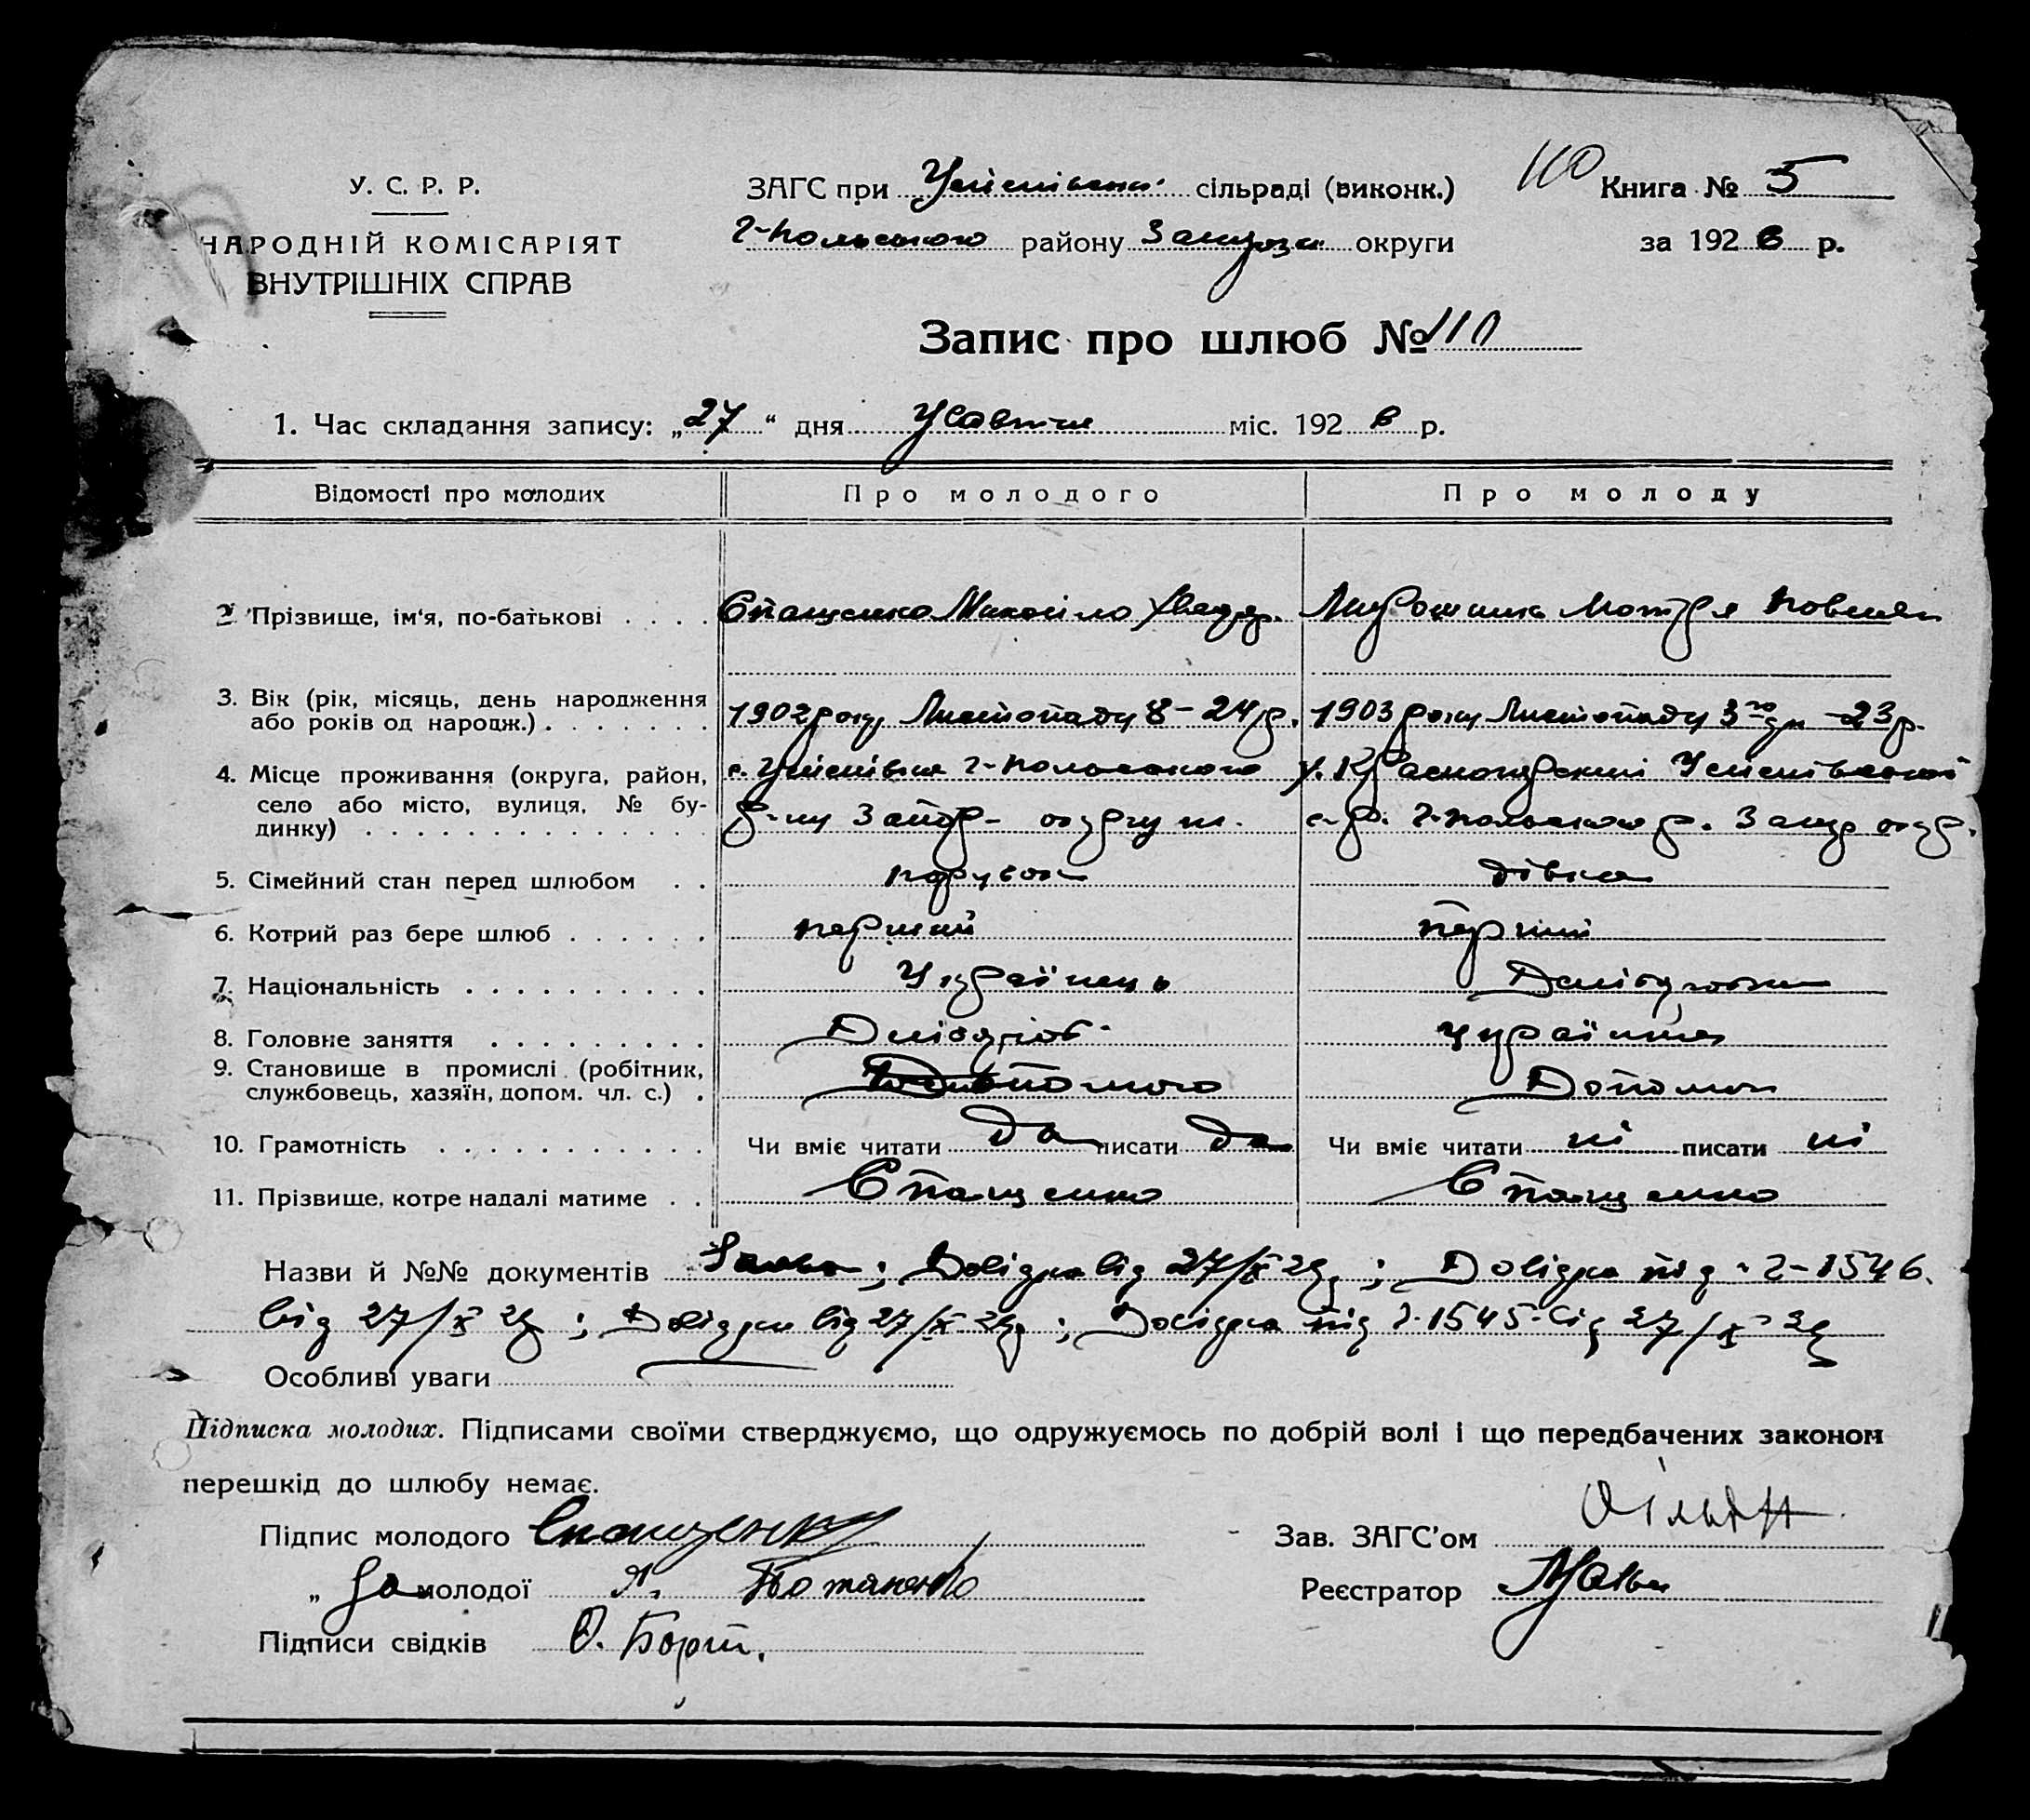 У. С. Р. Р.
НАРОДНІЙ КОМІСАРІЯТ
ВНУТРІШНІХ СПРАВ
ЗАГС при Успенівськ. сільраді (виконк.)
Г-Польського району Запоріз. округи
110 Книга № 5
за 1926 р.
Запис про шлюб № 110
1. Час складання запису: „27“ дня Жовтня міс. 1926 р.
Відомості про молодих Про молодого Про молоду
2. Прізвище, ім'я, по-батькові . . . . Єпащенко Микойло Мирошник Мотря
3. Вік (рік, місяць, день народження
або років од народж.) . . . . . . . 1902 року Листопаду 8 – 24 р. 1903 року Листопаду 3го дн – 23 р.
4. Місце проживання (округа, район, с. Успенівка Г-Польського х. Красногорський Успенівської
село або місто, вулиця, № бу- р-ну Запор- округи с-р. Г-Польського р. Запор окр.
динку) . . . . . . . . . . . . . .
5. Сімейний стан перед шлюбом . . парубок дівка
6. Котрий раз бере шлюб . . . . . . перший перший
7. Національність . . . . . . . . . . Українець
8. Головне заняття . . . . . . . . . Хлібороб українка
9. Становище в промислі (робітник,
службовець, хазяїн, допом. чл. с.) . допомога Допомог
10. Грамотність . . . . . . . . . . . Чи вміє читати да писати да Чи вміє читати ні писати ні
11. Прізвище, котре надалі матиме . . Єпащенко Єпащенко
Назви й №№ документів Заява; Довідка від 27/X 26; Довідка під 2-1546.
від 27/X 26; Довідка від 27/X 26; Довідка під 2-1545 від 27/X 26
Особливі уваги
Підписка молодих. Підписами своїми стверджуємо, що одружуємось по добрій волі і що передбачених законом
перешкід до шлюбу немає.
Підпис молодого Єпащенко Зав. ЗАГС'ом
„ За молодої Я. Потапенко Реєстратор
Підписи свідків О. Борт.